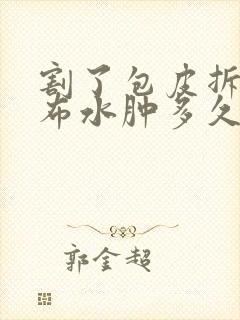 割了包皮拆
布水肿多久
郭金超